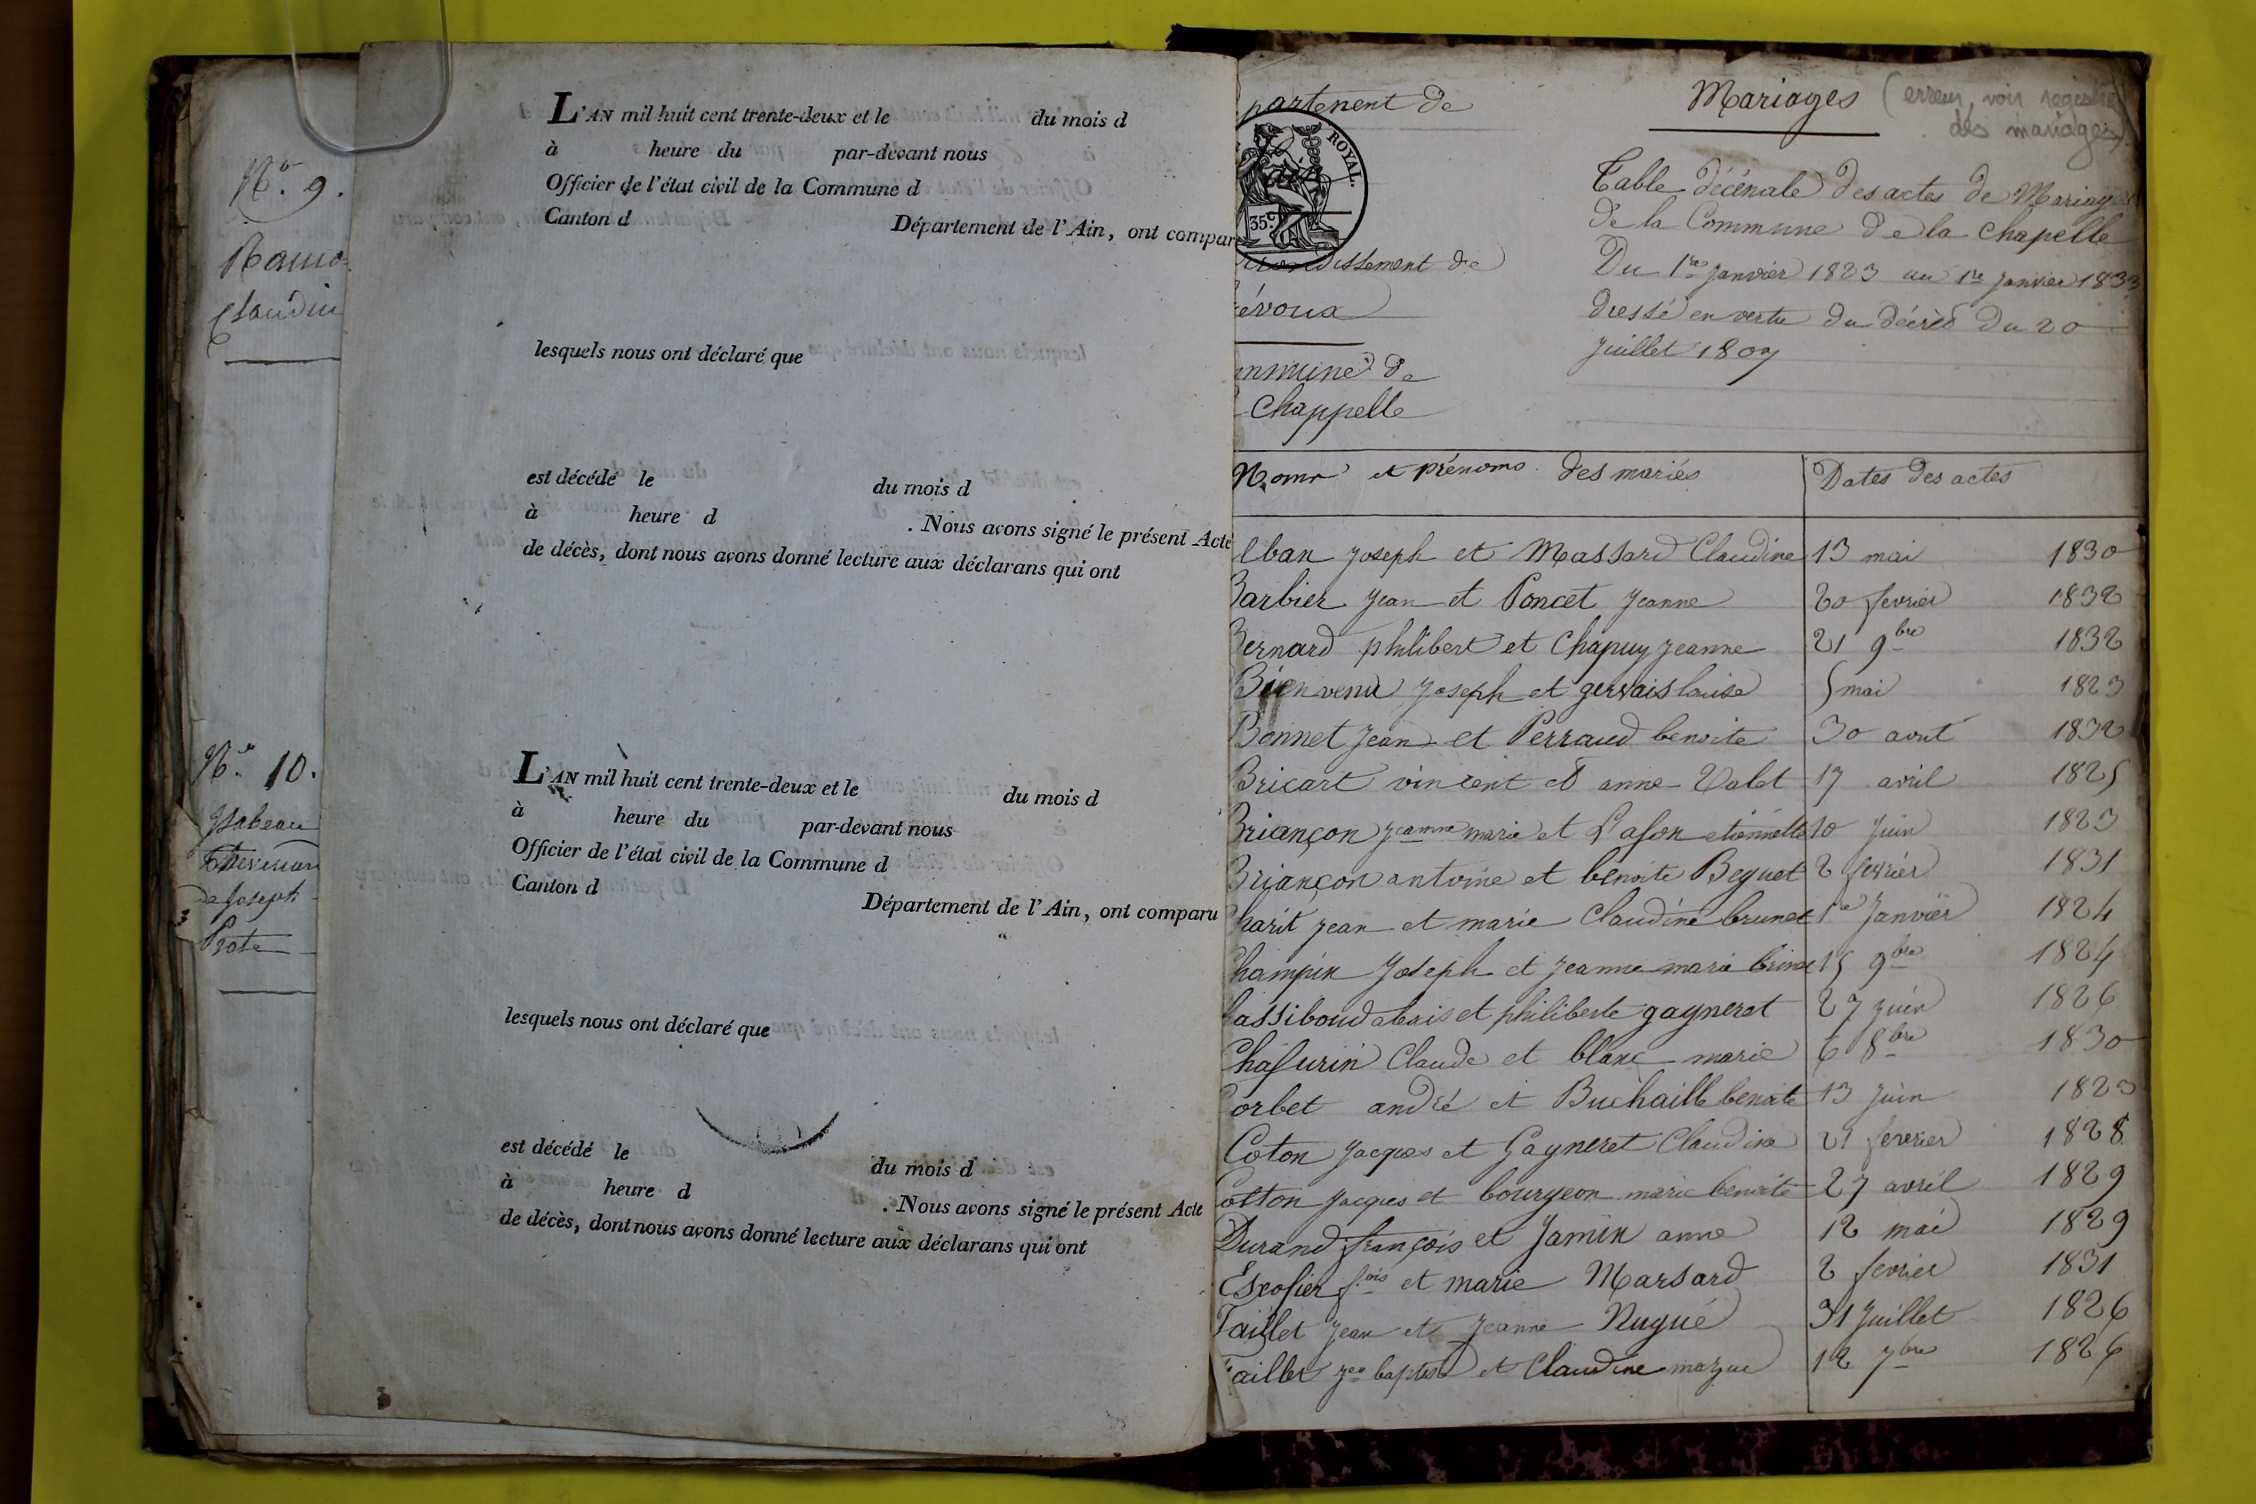 No. 9.
Claudin
No. 10.
Ysabeau
de Joseph
L'AN mil huit cent trente-deux et le du mois d
à heure du par-devant nous
Officier de l'état civil de la Commune d
Canton d Département de l'Ain, ont compar
lesquels nous ont déclaré que
est décédé le du mois d
à heure d . Nous avons signé le présent Acte
de décès, dont nous avons donné lecture aux déclarans qui ont
L'AN mil huit cent trente-deux et le du mois d
à heure du par-devant nous
Officier de l'état civil de la Commune d
Canton d Département de l'Ain, ont comparu
lesquels nous ont déclaré que
est décédé le du mois d
à heure d . Nous avons signé le présent Acte
de décès, dont nous avons donné lecture aux déclarans qui ont
partement de
ROYAL.
35c.
ondissement de
évoux
mmune de
Chappelle
Mariages (erreur, voir registre
des mariages)
Table décénale des actes de Mariages
de la Commune de la Chapelle
Du 1re janvier 1823 au 1re janvier 1833
dressé en vertu du décrèt du 20
Juillet 1807
Noms et prénoms des mariés Dates des actes
lban Joseph et Massard Claudine 13 mai 1830
Barbier Jean et Poncet Jeanne 20 fevrier 1832
Bernard philibert et Chapuy Jeanne 21 9bre 1832
Bienvenu Joseph et gervais louise 5 mai 1823
Bonnet Jean et Perraud benoite 30 aout 1832
Bricart vincent et anne Valet 17 avril 1825
Briançon Jeanne marie et Lafon etiennette 10 Juin 1823
Briançon antoine et benoite Beguet 2 fevrier 1831
harit Jean et marie Claudine brunet 1re Janvier 1824
hampin Joseph et Jeanne marie 15 9bre 1824
hassiboud et philiberte gagneret 27 juin 1826
Chafurin Claude et blanc marie 6 8bre 1830
orbet andré et Buchaille benoite 13 Juin 1823
Coton Jacques et Gagneret Claudine 21 fevrier 1828
Cotton Jacques et bourgeon marie benoite 27 avril 1829
Durand françois et Jamin anne 12 mai 1829
Escofier fois et marie Marsard 2 fevrier 1831
Faillet Jean et Jeanne Nugué 31 Juillet 1826
aillet Jean baptiste et Claudine mazue 12 7bre 1826